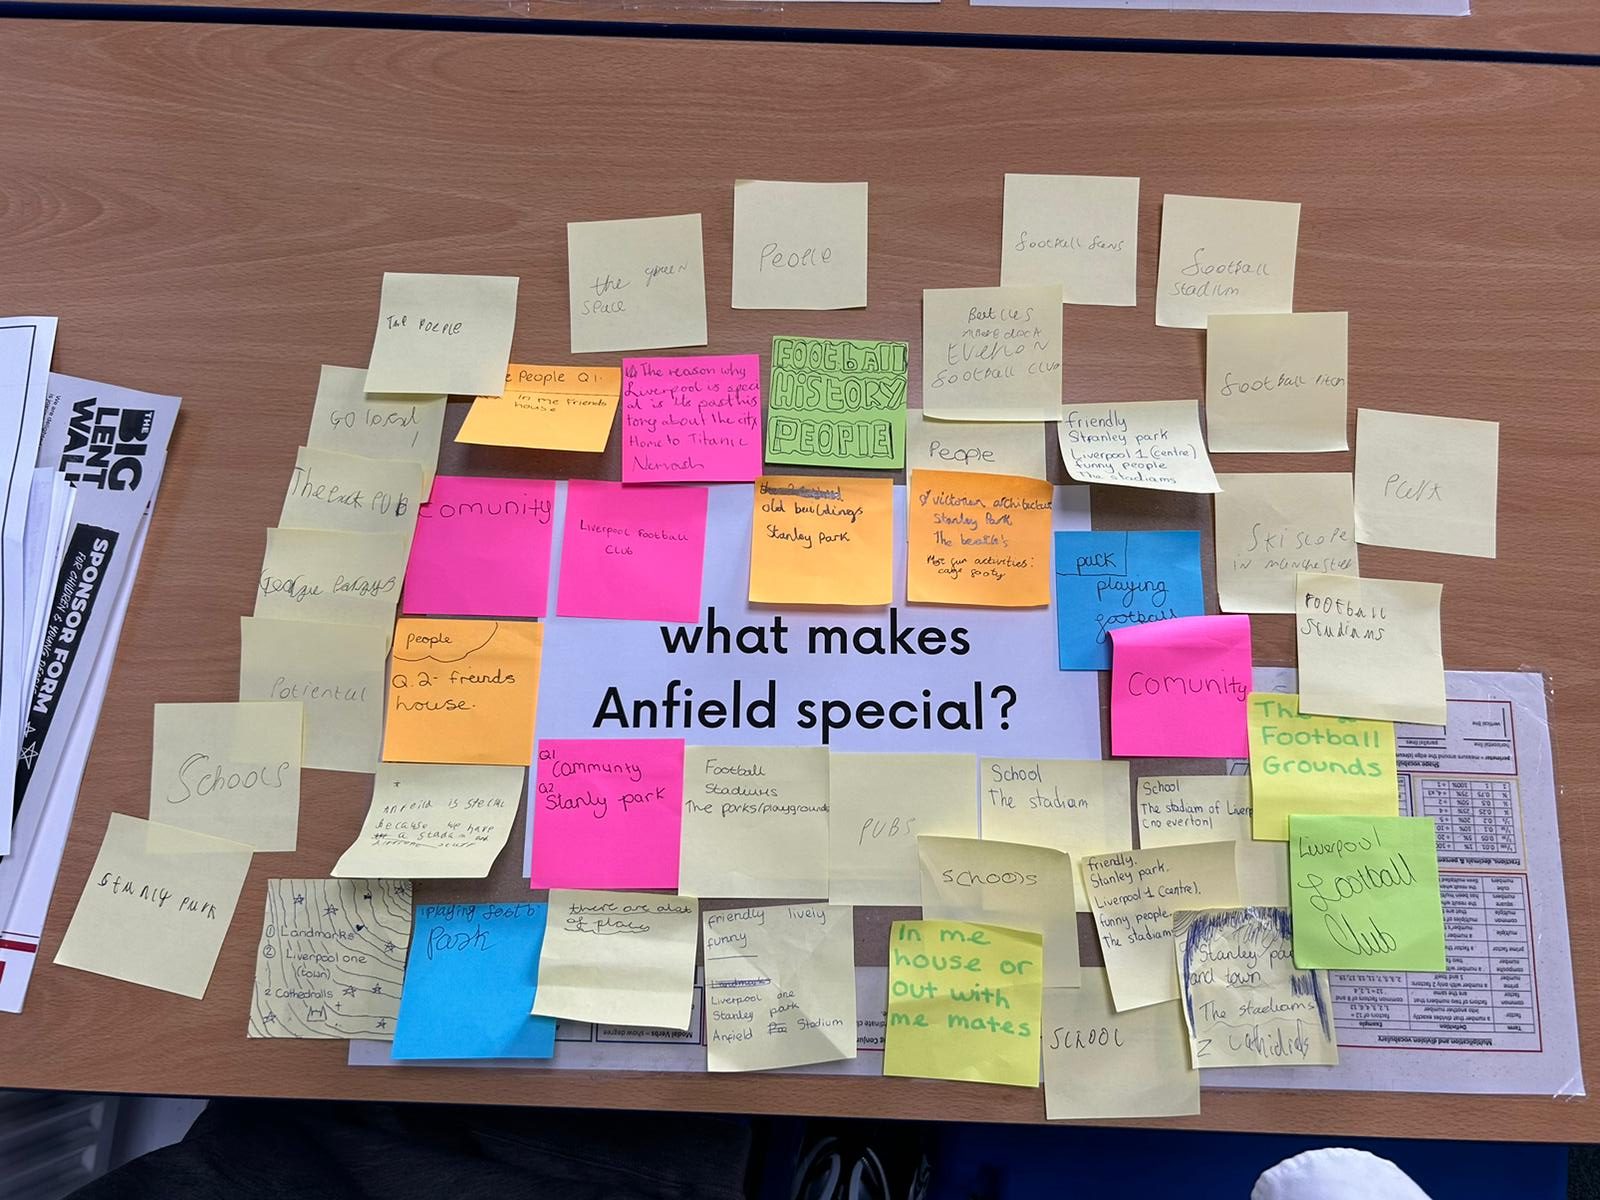 what makes
Anfield special?
People
football fans
football
stadium
the green
space
The People
Football
History
People
Beetles
Everton
football club
football pitch
Park
People Q1.
In me friends
house
The reason why
Liverpool is speci
al is its past his
tory about the city
Home to Titanic
People
friendly
Stranley park
Liverpool 1 (centre)
funny people
The stadiams
GO
The
PUB
Comunity
Liverpool Football
Club
old buildings
Stanley Park
victorian architecture
Stanley Park
The beatles
More fun activities:
cage footy.
park
playing
football
Ski slope
in manchester
Football
Studiams
people
Q.2- freinds
house.
Potientel
Comunity
The
Football
Grounds
Schools
Anfeild is special
because we have
a stadium and
different stuff
Q1
Community
Q2
Stanly park
Football
Stadiums
The parks/playgrounds
PUBS
School
The stadiam
School
The stadiam of Liverp
(no everton)
Liverpool
Football
Club
Stanley park
schools
friendly.
Stanley park.
Liverpool 1 (centre).
funny people.
The stadiam
① Landmarks
② Liverpool one
(town)
2 Cathedralls
playing footb
Park
there are alot
of places
friendly lively
funny
Landmarks
Liverpool one
Stanley park
Anfield Stadium
In me
house or
out with
me mates
SCHOOL
Stanley pa
and town
The stadiams
2 Cathidrals
THE
BIG
LENT
WAL
SPONSOR FORM
FOR CHILDREN & YOUNG PE
Modal Verbs – show degree
Multiplication and division vocabulary
Term
Definition
Example